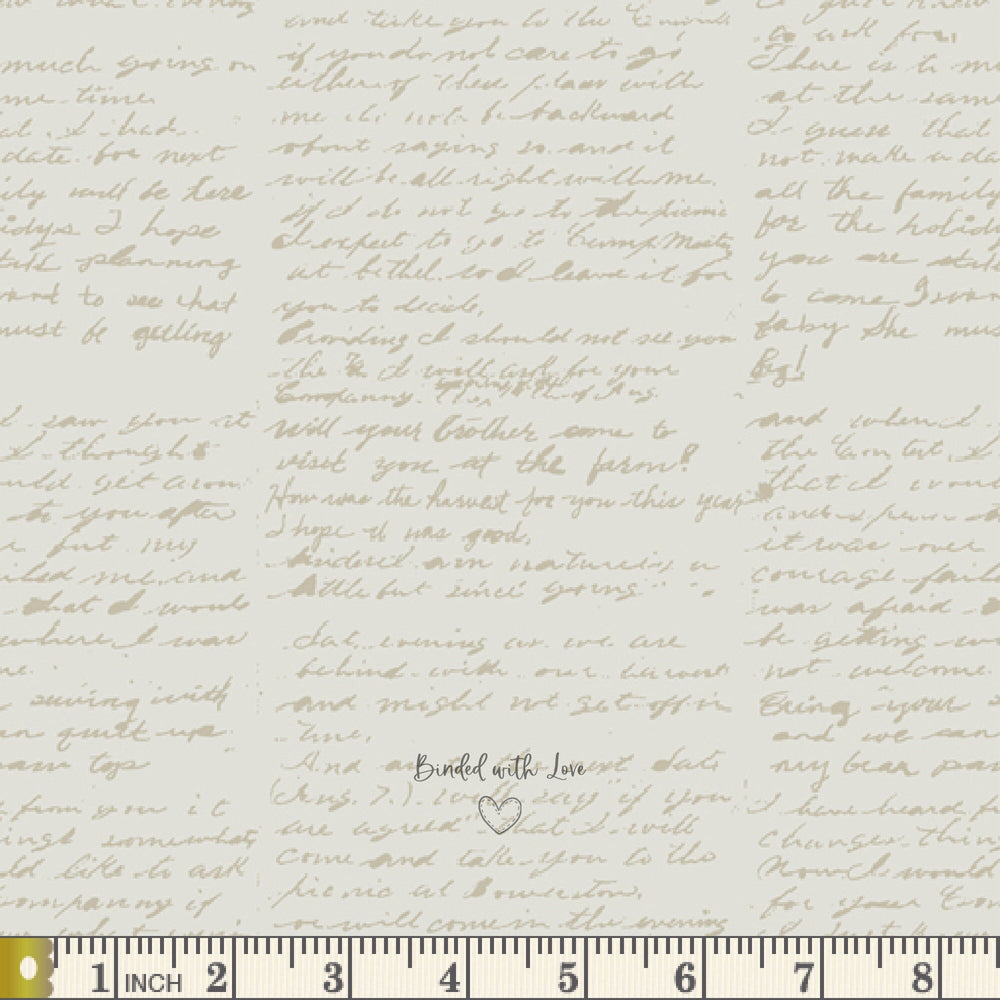 love evening
much going on
me time.
at I had
date for next
ily will be here
idys I hope
still planning
ward to see what
must be getting
I saw you at
I thought
uld get a
to you after
but my
iled me and
that I would
where I was
me.
sewing with
an quilt up
am tops
from you it
somewhat
ld like to ask
company if
and take you to the
if you do not care to go
either of these places with
me do not be backward
about saying so and it
will be all right with me.
if I do not go to the picnic
I expect to go to Camp Meeting
at bethel. so I leave it for
you to decide,
Providing I should not see you
the I will ask for your
Company. The of Aug.
Will your brother come to
visit you at the farm?
How was the harvest for you this year
I hope it was good,
am natured
little but since going
Sat. evening as we are
behind with our
and might not get off in
time.
And date
Binded with Love
(Aug. 7.). will say if you
are agreed that I will
come and take you to the
picnic at
or will come in the evening
to ask for
There is
at the same
I guess that
not make a da
all the family
for the holid
you are still
to come I wan
baby She mus
Big!
and when I
the Contest, I
that I wou
it was over
courage fail
was afraid
be getting
not welcome
Bring your
and we can
my bear pa
I have heard f
changes thin
Now I would
for your Com
1 INCH 2 3 4 5 6 7 8